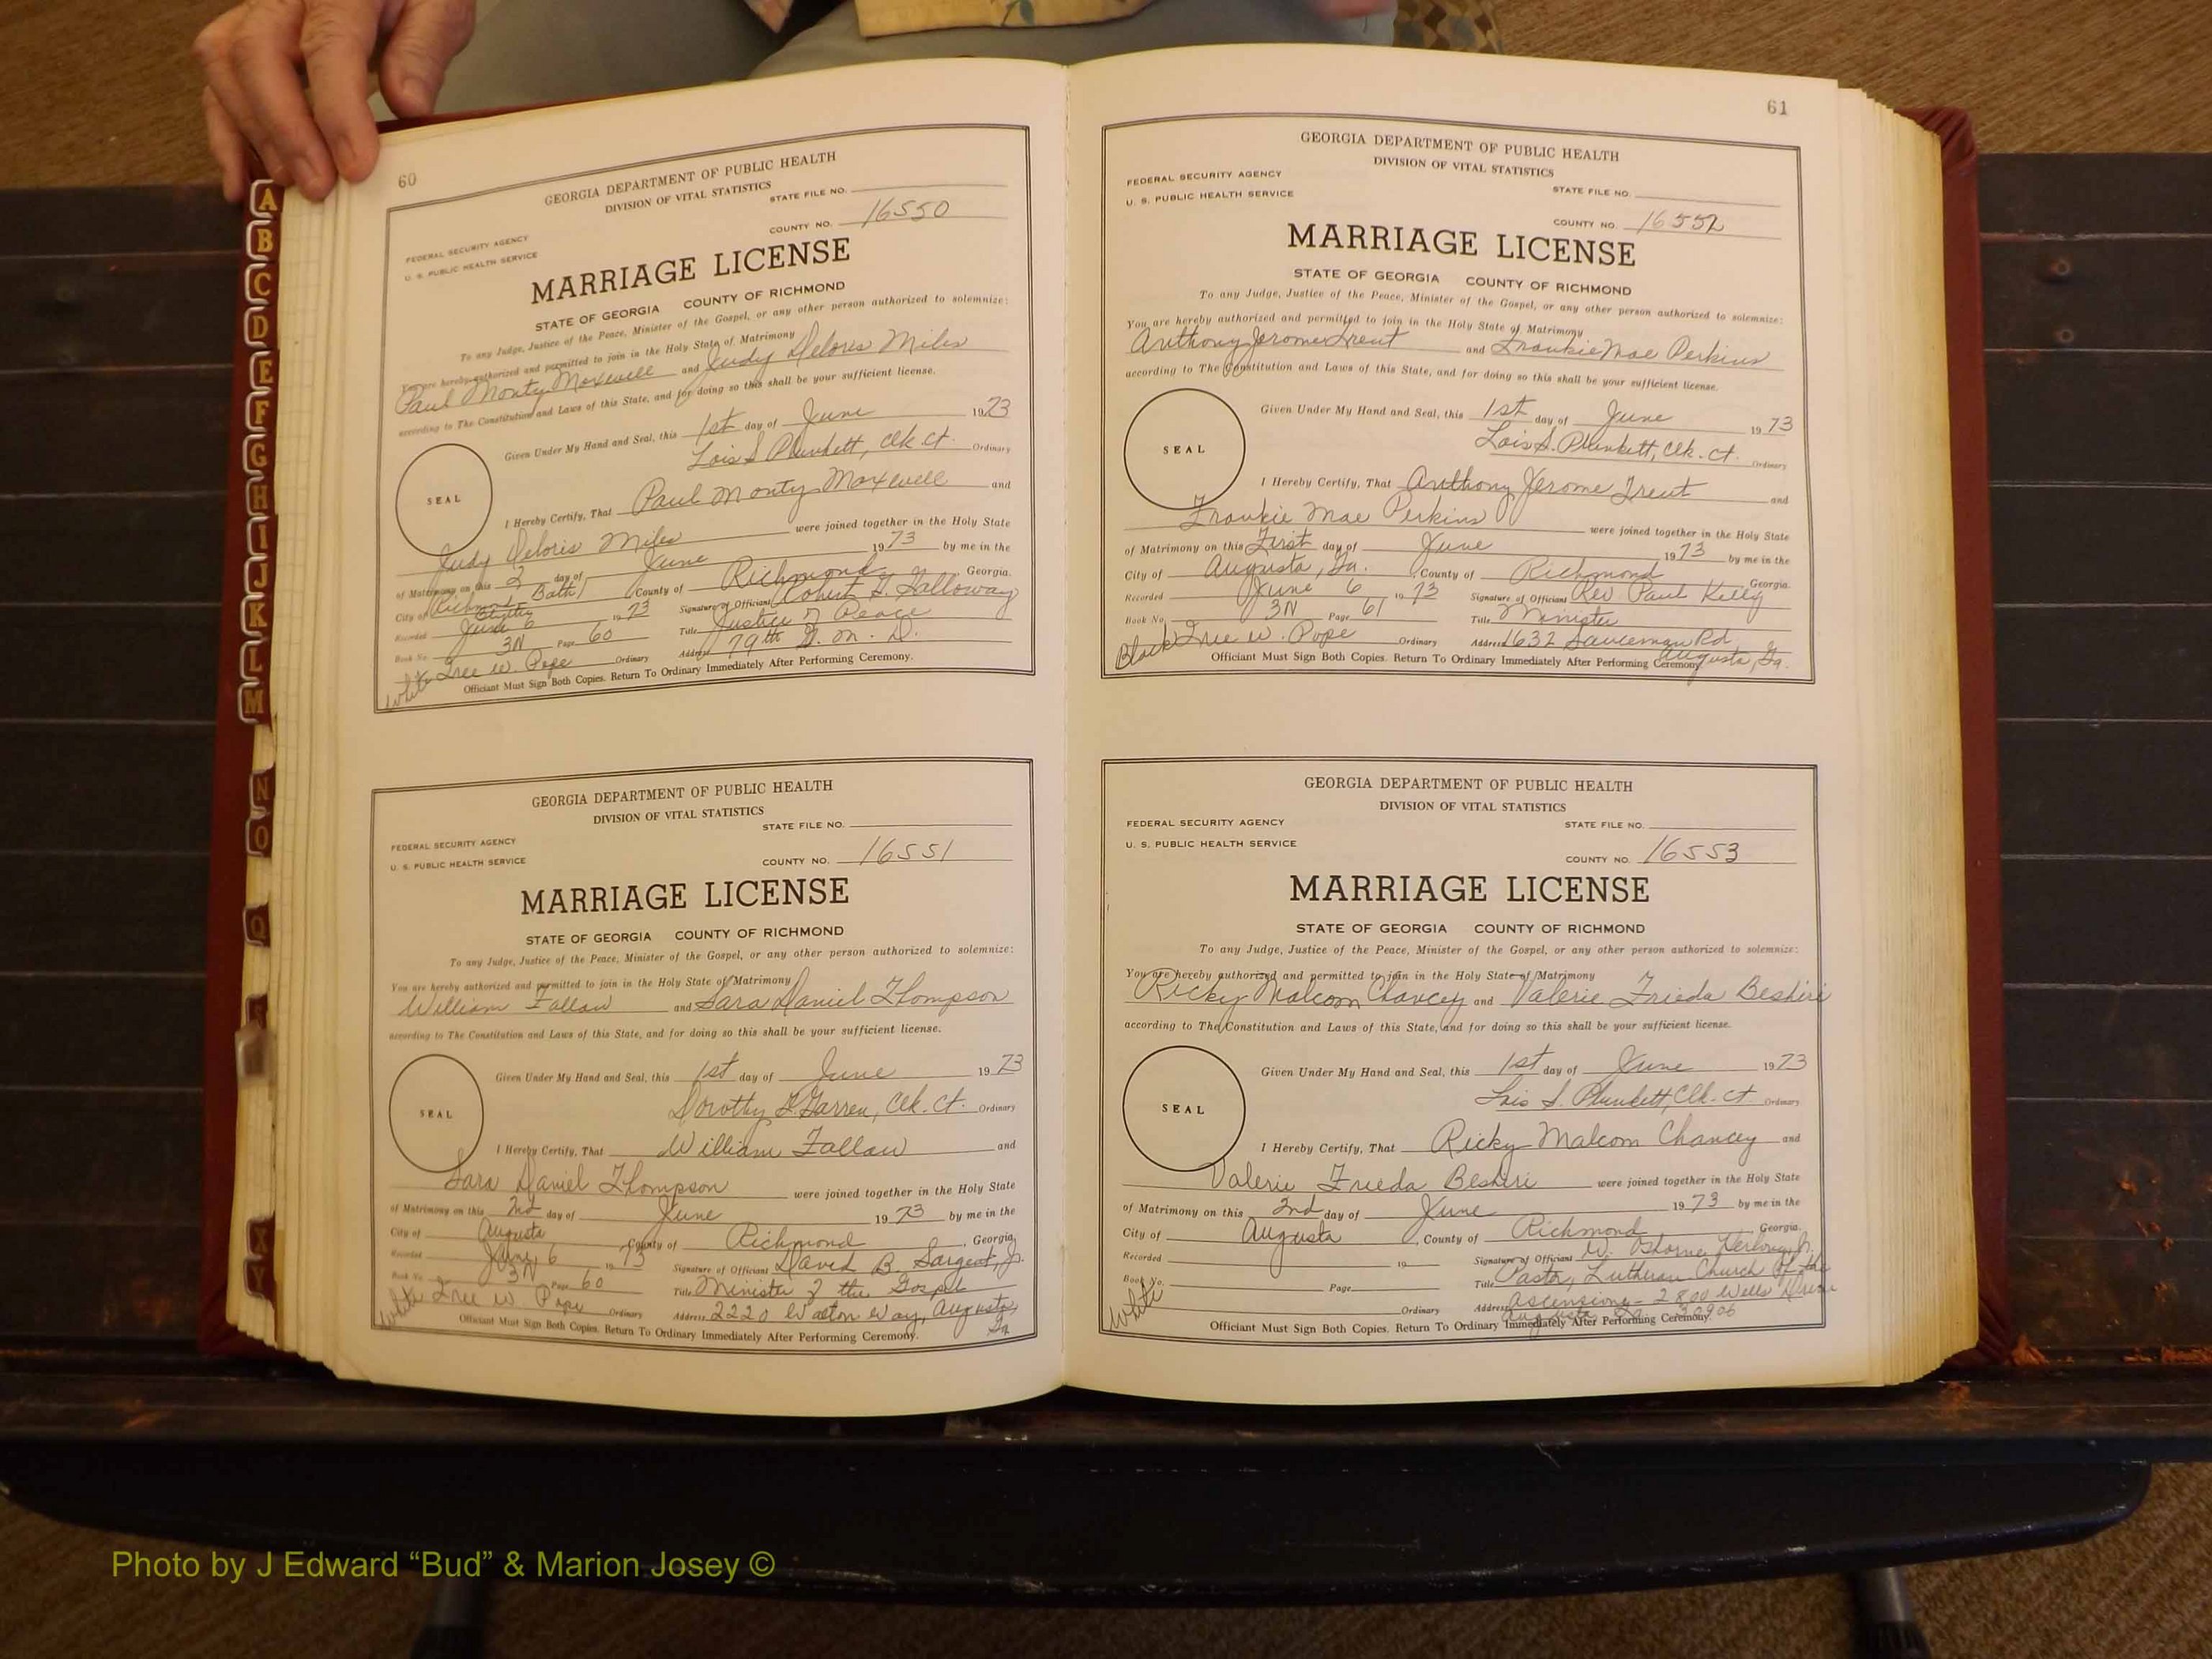 60
GEORGIA DEPARTMENT OF PUBLIC HEALTH
DIVISION OF VITAL STATISTICS
STATE FILE NO.
COUNTY NO. 16550
FEDERAL SECURITY AGENCY
U. S. PUBLIC HEALTH SERVICE
MARRIAGE LICENSE
STATE OF GEORGIA COUNTY OF RICHMOND
To any Judge, Justice of the Peace, Minister of the Gospel, or any other person authorized to solemnize:
You are hereby authorized and permitted to join in the Holy State of Matrimony
Paul Monty Maxwell and Judy Deloris Miles
according to The Constitution and Laws of this State, and for doing so this shall be your sufficient license.
Given Under My Hand and Seal, this 1st day of June 1973
Lois S Plunkett, Clk. Ct. Ordinary
SEAL
I Hereby Certify, That Paul Monty Maxwell and
Judy Deloris Miles were joined together in the Holy State
of Matrimony on this 2 day of June 1973 by me in the
City of Bath County of Richmond, Georgia.
Recorded June 6 1973 Signature of Officiant Robert G. Galloway
Book No. 3N Page 60 Title Justice of Peace
Tree W. Pope Ordinary Address 79th G. M. D.
White
Officiant Must Sign Both Copies. Return To Ordinary Immediately After Performing Ceremony.
GEORGIA DEPARTMENT OF PUBLIC HEALTH
DIVISION OF VITAL STATISTICS
STATE FILE NO.
FEDERAL SECURITY AGENCY
U. S. PUBLIC HEALTH SERVICE
COUNTY NO. 16551
MARRIAGE LICENSE
STATE OF GEORGIA COUNTY OF RICHMOND
To any Judge, Justice of the Peace, Minister of the Gospel, or any other person authorized to solemnize:
You are hereby authorized and permitted to join in the Holy State of Matrimony
William Fallaw and Sara Daniel Thompson
according to The Constitution and Laws of this State, and for doing so this shall be your sufficient license.
Given Under My Hand and Seal, this 1st day of June 1973
Dorothy Garren, Clk. Ct. Ordinary
SEAL
I Hereby Certify, That William Fallaw and
Sara Daniel Thompson were joined together in the Holy State
of Matrimony on this 2nd day of June 1973 by me in the
City of Augusta County of Richmond, Georgia.
Recorded June 6 1973 Signature of Officiant David B. Sargent, Jr.
Book No. 3N Page 60 Title Minister of the Gospel
White Tree W. Pope Ordinary Address 2220 Walton Way, Augusta, Ga
Officiant Must Sign Both Copies. Return To Ordinary Immediately After Performing Ceremony.
61
GEORGIA DEPARTMENT OF PUBLIC HEALTH
DIVISION OF VITAL STATISTICS
FEDERAL SECURITY AGENCY
U. S. PUBLIC HEALTH SERVICE
STATE FILE NO.
COUNTY NO. 16552
MARRIAGE LICENSE
STATE OF GEORGIA COUNTY OF RICHMOND
To any Judge, Justice of the Peace, Minister of the Gospel, or any other person authorized to solemnize:
You are hereby authorized and permitted to join in the Holy State of Matrimony
Anthony Jerome Trent and Frankie Mae Perkins
according to The Constitution and Laws of this State, and for doing so this shall be your sufficient license.
Given Under My Hand and Seal, this 1st day of June 1973
Lois S. Plunkett, Clk. Ct. Ordinary
SEAL
I Hereby Certify, That Anthony Jerome Trent and
Frankie Mae Perkins were joined together in the Holy State
of Matrimony on this First day of June 1973 by me in the
City of Augusta, Ga., County of Richmond Georgia.
Recorded June 6 1973 Signature of Officiant Rev Paul Kelly
Book No. 3N Page 61 Title Minister
Black Tree W. Pope Ordinary Address 1632 Rd
Augusta, Ga.
Officiant Must Sign Both Copies. Return To Ordinary Immediately After Performing Ceremony.
GEORGIA DEPARTMENT OF PUBLIC HEALTH
DIVISION OF VITAL STATISTICS
FEDERAL SECURITY AGENCY
U. S. PUBLIC HEALTH SERVICE
STATE FILE NO.
COUNTY NO. 16553
MARRIAGE LICENSE
STATE OF GEORGIA COUNTY OF RICHMOND
To any Judge, Justice of the Peace, Minister of the Gospel, or any other person authorized to solemnize:
You are hereby authorized and permitted to join in the Holy State of Matrimony
Ricky Malcom Chancey and Valerie Frieda Beshiri
according to The Constitution and Laws of this State, and for doing so this shall be your sufficient license.
Given Under My Hand and Seal, this 1st day of June 1973
Lois S. Plunkett, Clk. Ct. Ordinary
SEAL
I Hereby Certify, That Ricky Malcom Chancey and
Valerie Frieda Beshiri were joined together in the Holy State
of Matrimony on this 2nd day of June 1973 by me in the
City of Augusta, County of Richmond Georgia.
Recorded 19 Signature of Officiant W. Osborne Herlong, Jr.
Book No. Page Title Pastor, Lutheran Church of the
White Ordinary Address Ascension - Drive
Augusta, Ga.
Officiant Must Sign Both Copies. Return To Ordinary Immediately After Performing Ceremony.
A
B
C
D
E
F
G
H
I
J
K
L
M
N
O
Q
S
X
Y
Photo by J Edward “Bud” & Marion Josey ©